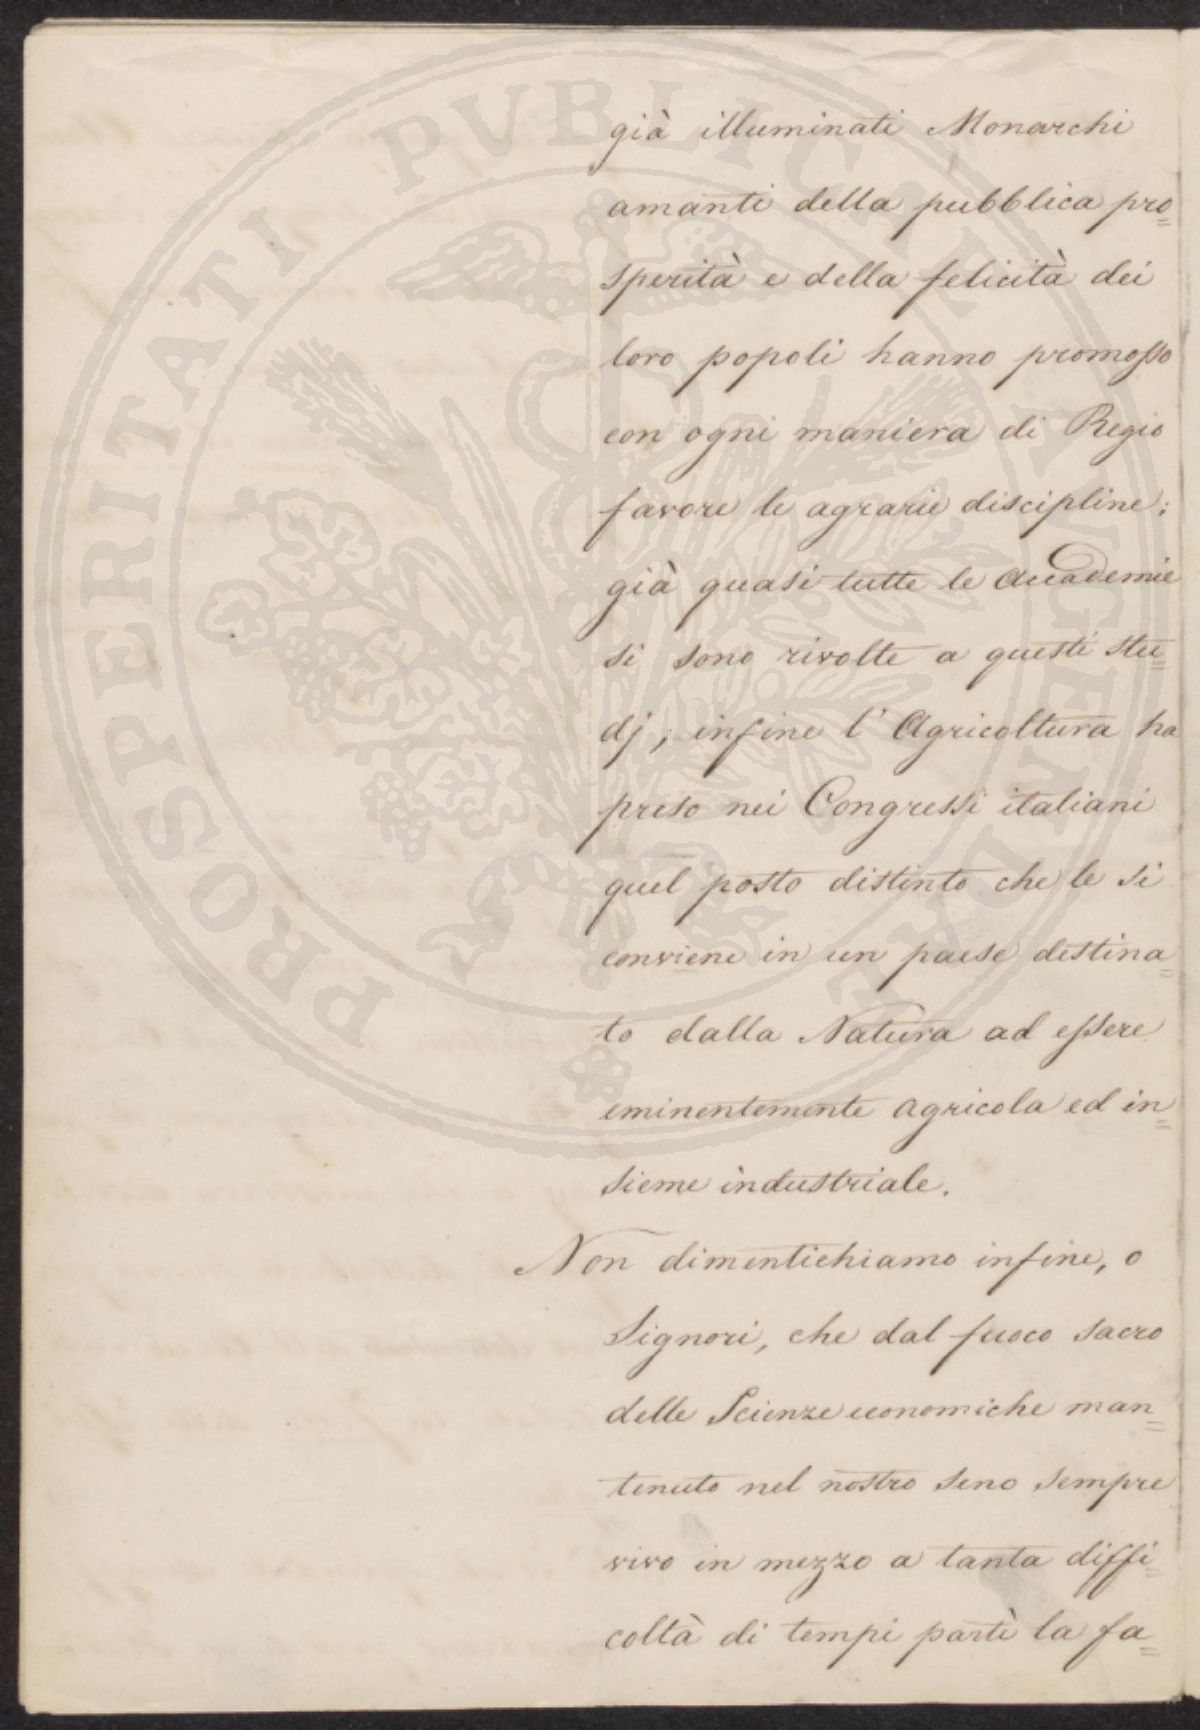 già illuminati Monarchi
amanti della pubblica pro=
sperità e della felicità dei
loro popoli hanno promosso
con ogni maniera di Regio
favore le agrarie discipline;
già quasi tutte le Accademie
si sono rivolte a questi stu=
dj, infine l'Agricoltura ha
preso nei Congressi italiani
quel posto distinto che le si
conviene in un paese destina=
to dalla Natura ad essere
eminentemente agricola ed in=
sieme industriale.
Non dimentichiamo infine, o
Signori, che dal fuoco sacro
delle Scienze economiche man=
tenuto nel nostro seno sempre
vivo in mezzo a tanta diffi=
coltà di tempi partì la fa=
PROSPERITATI PVBLICAE AVGENDAE